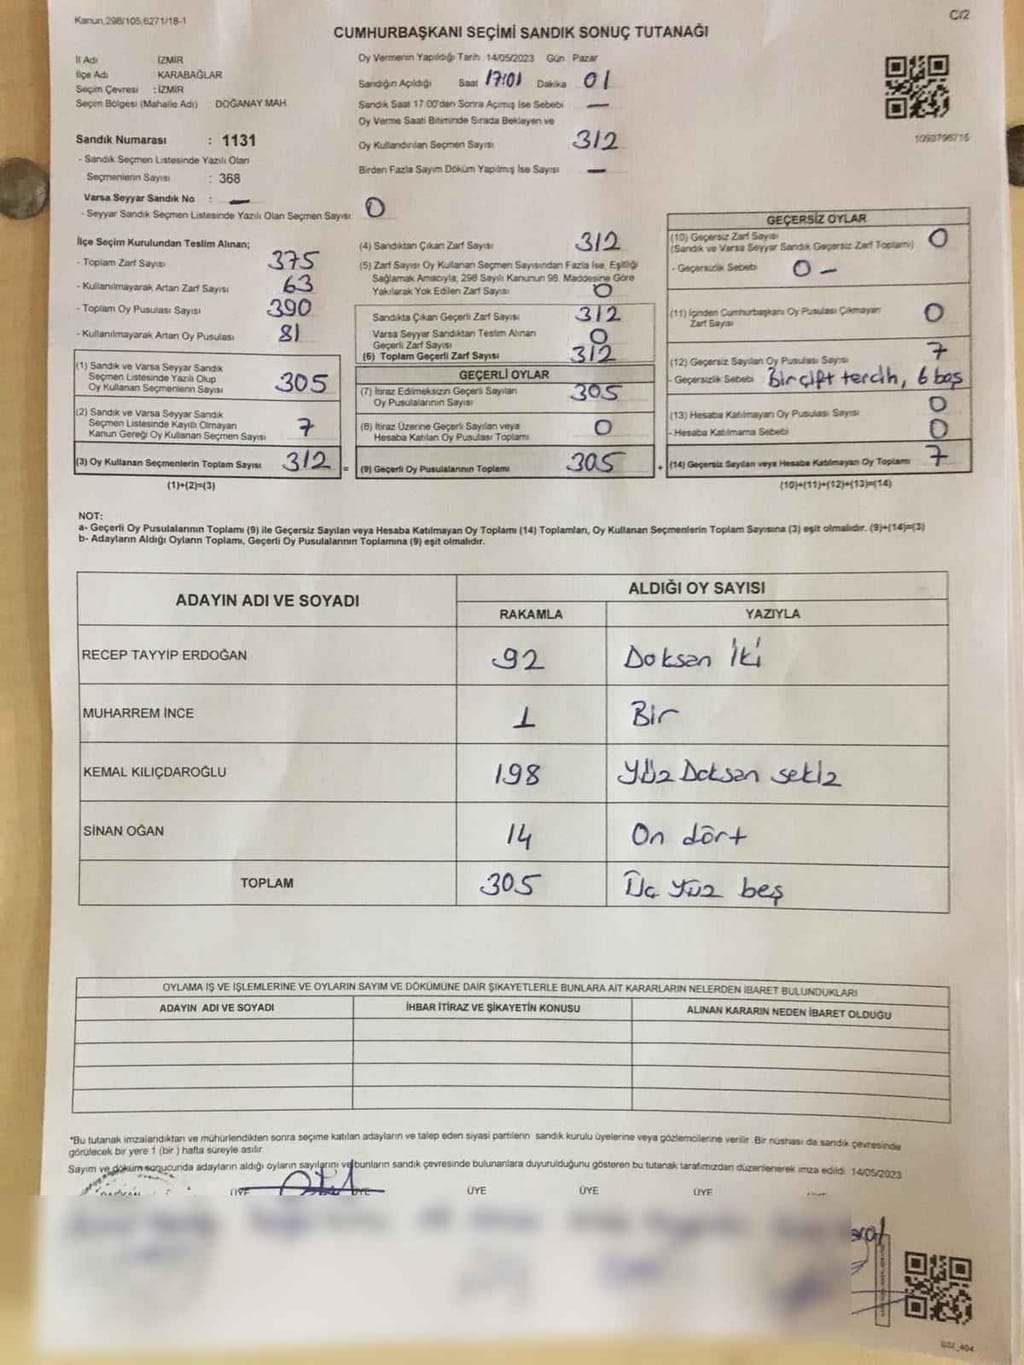 Kanun,298/105,6271/18-1
C/2
CUMHURBAŞKANI SEÇİMİ SANDIK SONUÇ TUTANAĞI
İl Adı İZMİR
İlçe Adı KARABAĞLAR
Seçim Çevresi : İZMİR
Seçim Bölgesi (Mahalle Adı) DOĞANAY MAH.
Sandık Numarası : 1131
- Sandık Seçmen Listesinde Yazılı Olan
Seçmenlerin Sayısı : 368
Varsa Seyyar Sandık No : —
- Seyyar Sandık Seçmen Listesinde Yazılı Olan Seçmen Sayısı 0
Oy Vermenin Yapıldığı Tarih 14/05/2023 Gün Pazar
Sandığın Açıldığı Saat 17:01 Dakika 01
Sandık Saat 17:00'den Sonra Açımış İse Sebebi —
Oy Verme Saati Bitiminde Sırada Bekleyen ve
Oy Kullandırılan Seçmen Sayısı 312
Birden Fazla Sayım Döküm Yapılmış İse Sayısı —
1093796716
İlçe Seçim Kurulundan Teslim Alınan;
- Toplam Zarf Sayısı 375
- Kullanılmayarak Artan Zarf Sayısı 63
- Toplam Oy Pusulası Sayısı 390
- Kullanılmayarak Artan Oy Pusulası 81
(1) Sandık ve Varsa Seyyar Sandık
Seçmen Listesinde Yazılı Olup
Oy Kullanan Seçmenlerin Sayısı 305
(2) Sandık ve Varsa Seyyar Sandık
Seçmen Listesinde Kayıtlı Olmayan
Kanun Gereği Oy Kullanan Seçmen Sayısı 7
(3) Oy Kullanan Seçmenlerin Toplam Sayısı 312 =
(1)+(2)=(3)
(4) Sandıktan Çıkan Zarf Sayısı 312
(5) Zarf Sayısı Oy Kullanan Seçmen Sayısından Fazla İse, Eşitliği
Sağlamak Amacıyla; 298 Sayılı Kanunun 98. Maddesine Göre
Yakılarak Yok Edilen Zarf Sayısı 0
Sandıkta Çıkan Geçerli Zarf Sayısı 312
Varsa Seyyar Sandıktan Teslim Alınan
Geçerli Zarf Sayısı 0
(6) Toplam Geçerli Zarf Sayısı 312
GEÇERLİ OYLAR
(7) İtiraz Edilmeksizin Geçerli Sayılan
Oy Pusulalarının Sayısı 305
(8) İtiraz Üzerine Geçerli Sayılan veya
Hesaba Katılan Oy Pusulası Toplamı 0
(9) Geçerli Oy Pusulalarının Toplamı 305 +
GEÇERSİZ OYLAR
(10) Geçersiz Zarf Sayısı
(Sandık ve Varsa Seyyar Sandık Geçersiz Zarf Toplamı) 0
- Geçersizlik Sebebi 0 -
(11) İçinden Cumhurbaşkanı Oy Pusulası Çıkmayan
Zarf Sayısı 0
(12) Geçersiz Sayılan Oy Pusulası Sayısı 7
- Geçersizlik Sebebi Bir çift tercih, 6 boş
(13) Hesaba Katılmayan Oy Pusulası Sayısı 0
- Hesaba Katılmama Sebebi 0
(14) Geçersiz Sayılan veya Hesaba Katılmayan Oy Toplamı 7
(10)+(11)+(12)+(13)=(14)
NOT:
a- Geçerli Oy Pusulalarının Toplamı (9) ile Geçersiz Sayılan veya Hesaba Katılmayan Oy Toplamı (14) Toplamları, Oy Kullanan Seçmenlerin Toplam Sayısına (3) eşit olmalıdır. (9)+(14)=(3)
b- Adayların Aldığı Oyların Toplamı, Geçerli Oy Pusulalarının Toplamına (9) eşit olmalıdır.
ADAYIN ADI VE SOYADI
ALDIĞI OY SAYISI
RAKAMLA YAZIYLA
RECEP TAYYİP ERDOĞAN 92 Doksan İki
MUHARREM İNCE 1 Bir
KEMAL KILIÇDAROĞLU 198 Yüz Doksan sekiz
SİNAN OĞAN 14 On dört
TOPLAM 305 Üç Yüz beş
OYLAMA İŞ VE İŞLEMLERİNE VE OYLARIN SAYIM VE DÖKÜMÜNE DAİR ŞİKAYETLERLE BUNLARA AİT KARARLARIN NELERDEN İBARET BULUNDUKLARI
ADAYIN ADI VE SOYADI İHBAR İTİRAZ VE ŞİKAYETİN KONUSU ALINAN KARARIN NEDEN İBARET OLDUĞU
*Bu tutanak imzalandıktan ve mühürlendikten sonra seçime katılan adayların ve talep eden siyasi partilerin sandık kurulu üyelerine veya gözlemcilerine verilir. Bir nüshası da sandık çevresinde
görülecek bir yere 1 (bir) hafta süreyle asılır.
Sayım ve döküm sonucunda adayların aldığı oyların sayılarını ve bunların sandık çevresinde bulunanlara duyurulduğunu gösteren bu tutanak tarafımızdan düzenlenerek imza edildi. 14/05/2023
ÜYE ÜYE ÜYE ÜYE ÜYE